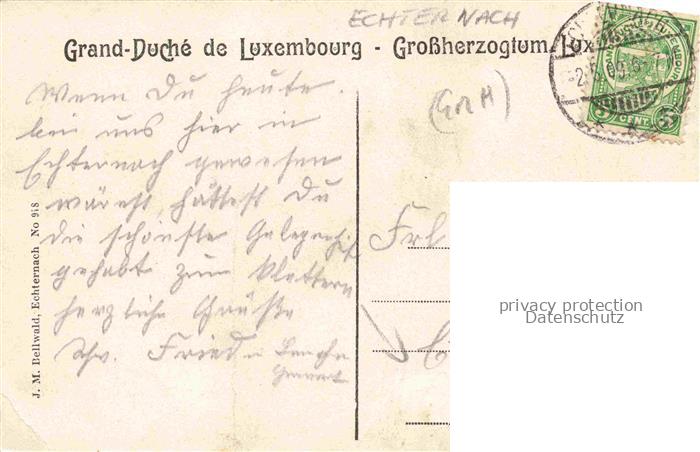 ECHTERNACH
Grand-Duché de Luxembourg - Großherzogtum Lux
Wenn Du heute
bei uns hier in
Echternach gewesen
wärest, hättest Du
die schönste Gelegenheit
gehabt zum Klettern
herzliche Grüße
Schw. Fried
(Gr H)
5 CENT. 5
Frl
privacy protection
Datenschutz
J. M. Bellwald, Echternach No 918